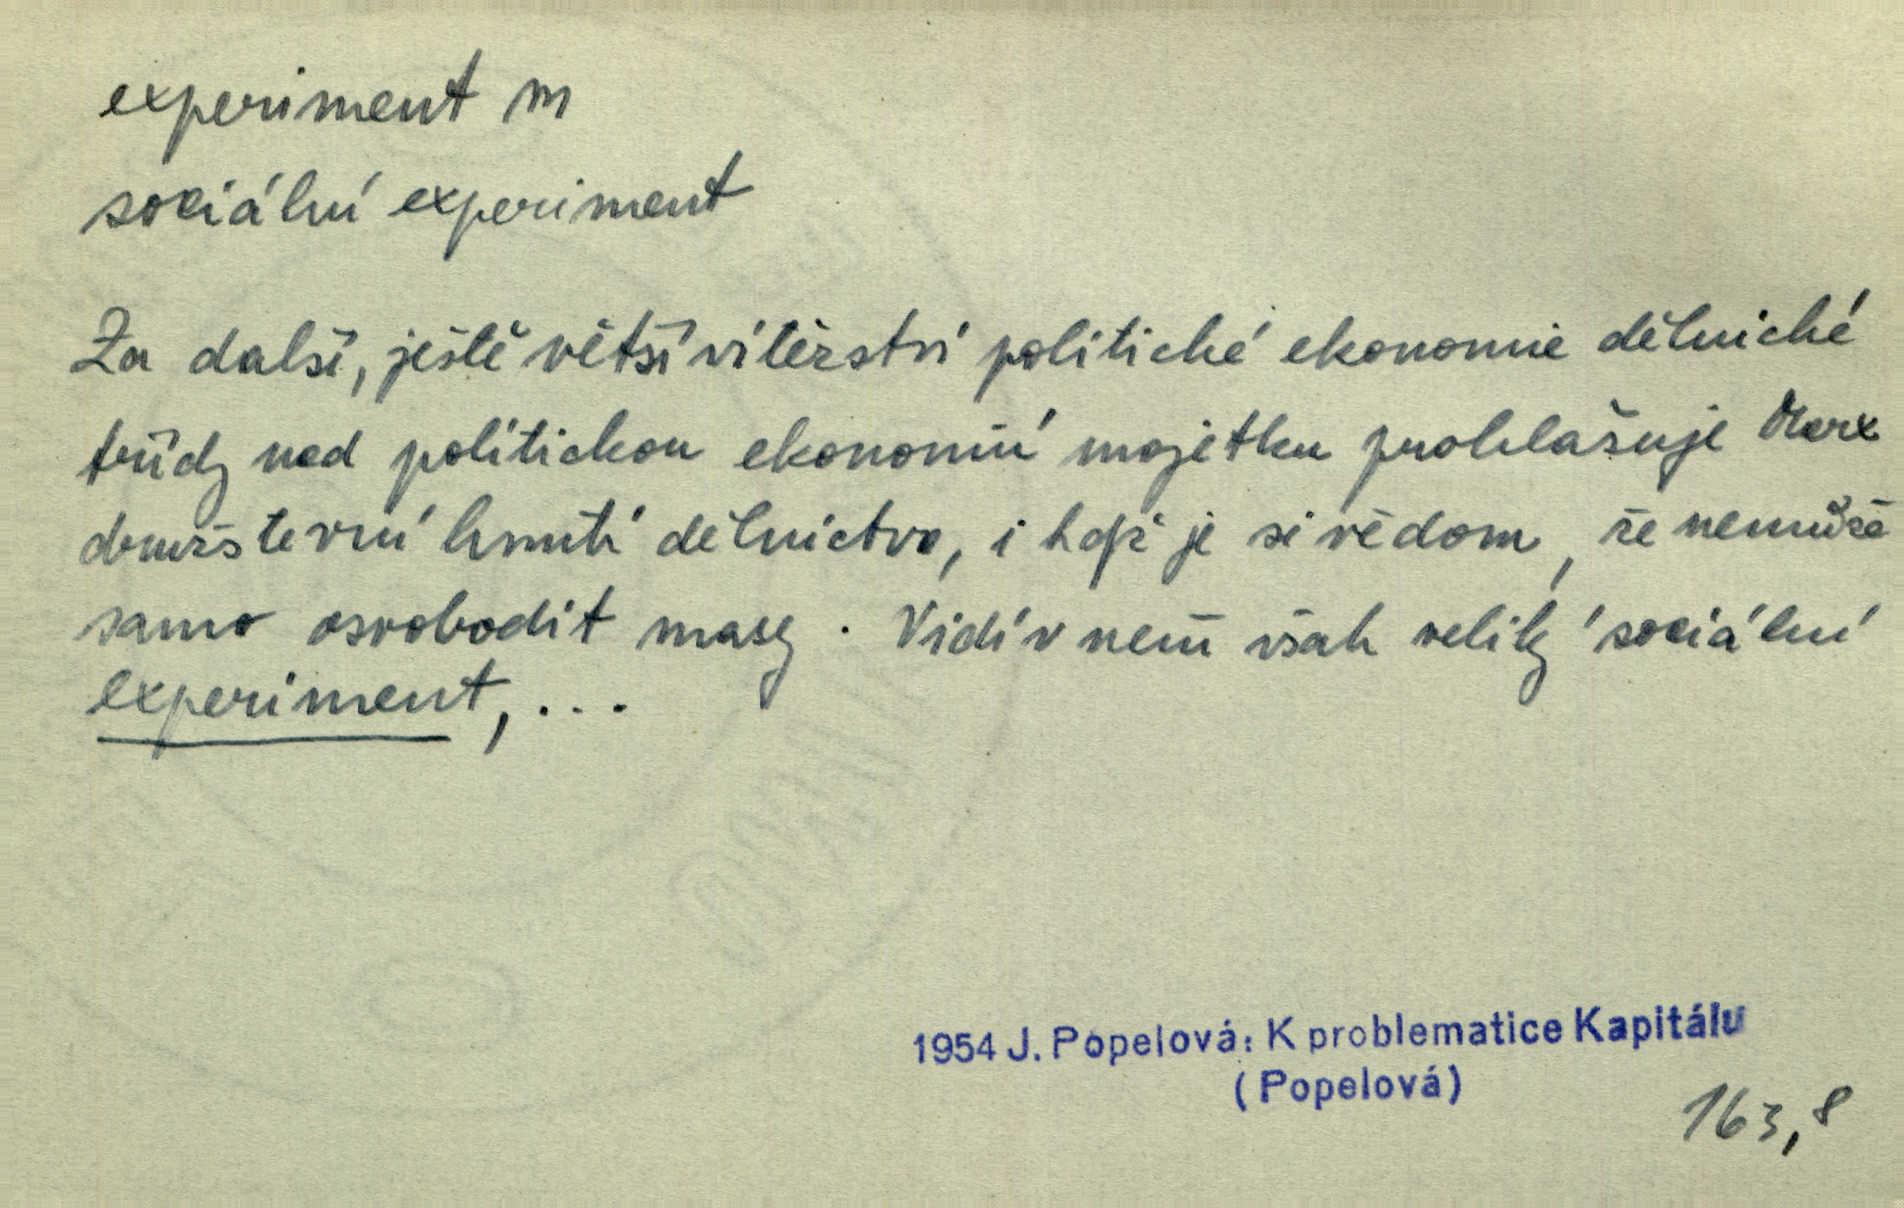 experiment m
sociální experiment
Za další, ještě větší vítězství politické ekonomie dělnické
třídy nad politickou ekonomií majetku prohlašuje Marx
družstevní hnutí dělnictva, i když je si vědom, že nemůže
samo osvobodit masy. Vidí v něm však veliký sociální
experiment, ...
1954 J. Popelová: K problematice Kapitálu
(Popelová)
163,8